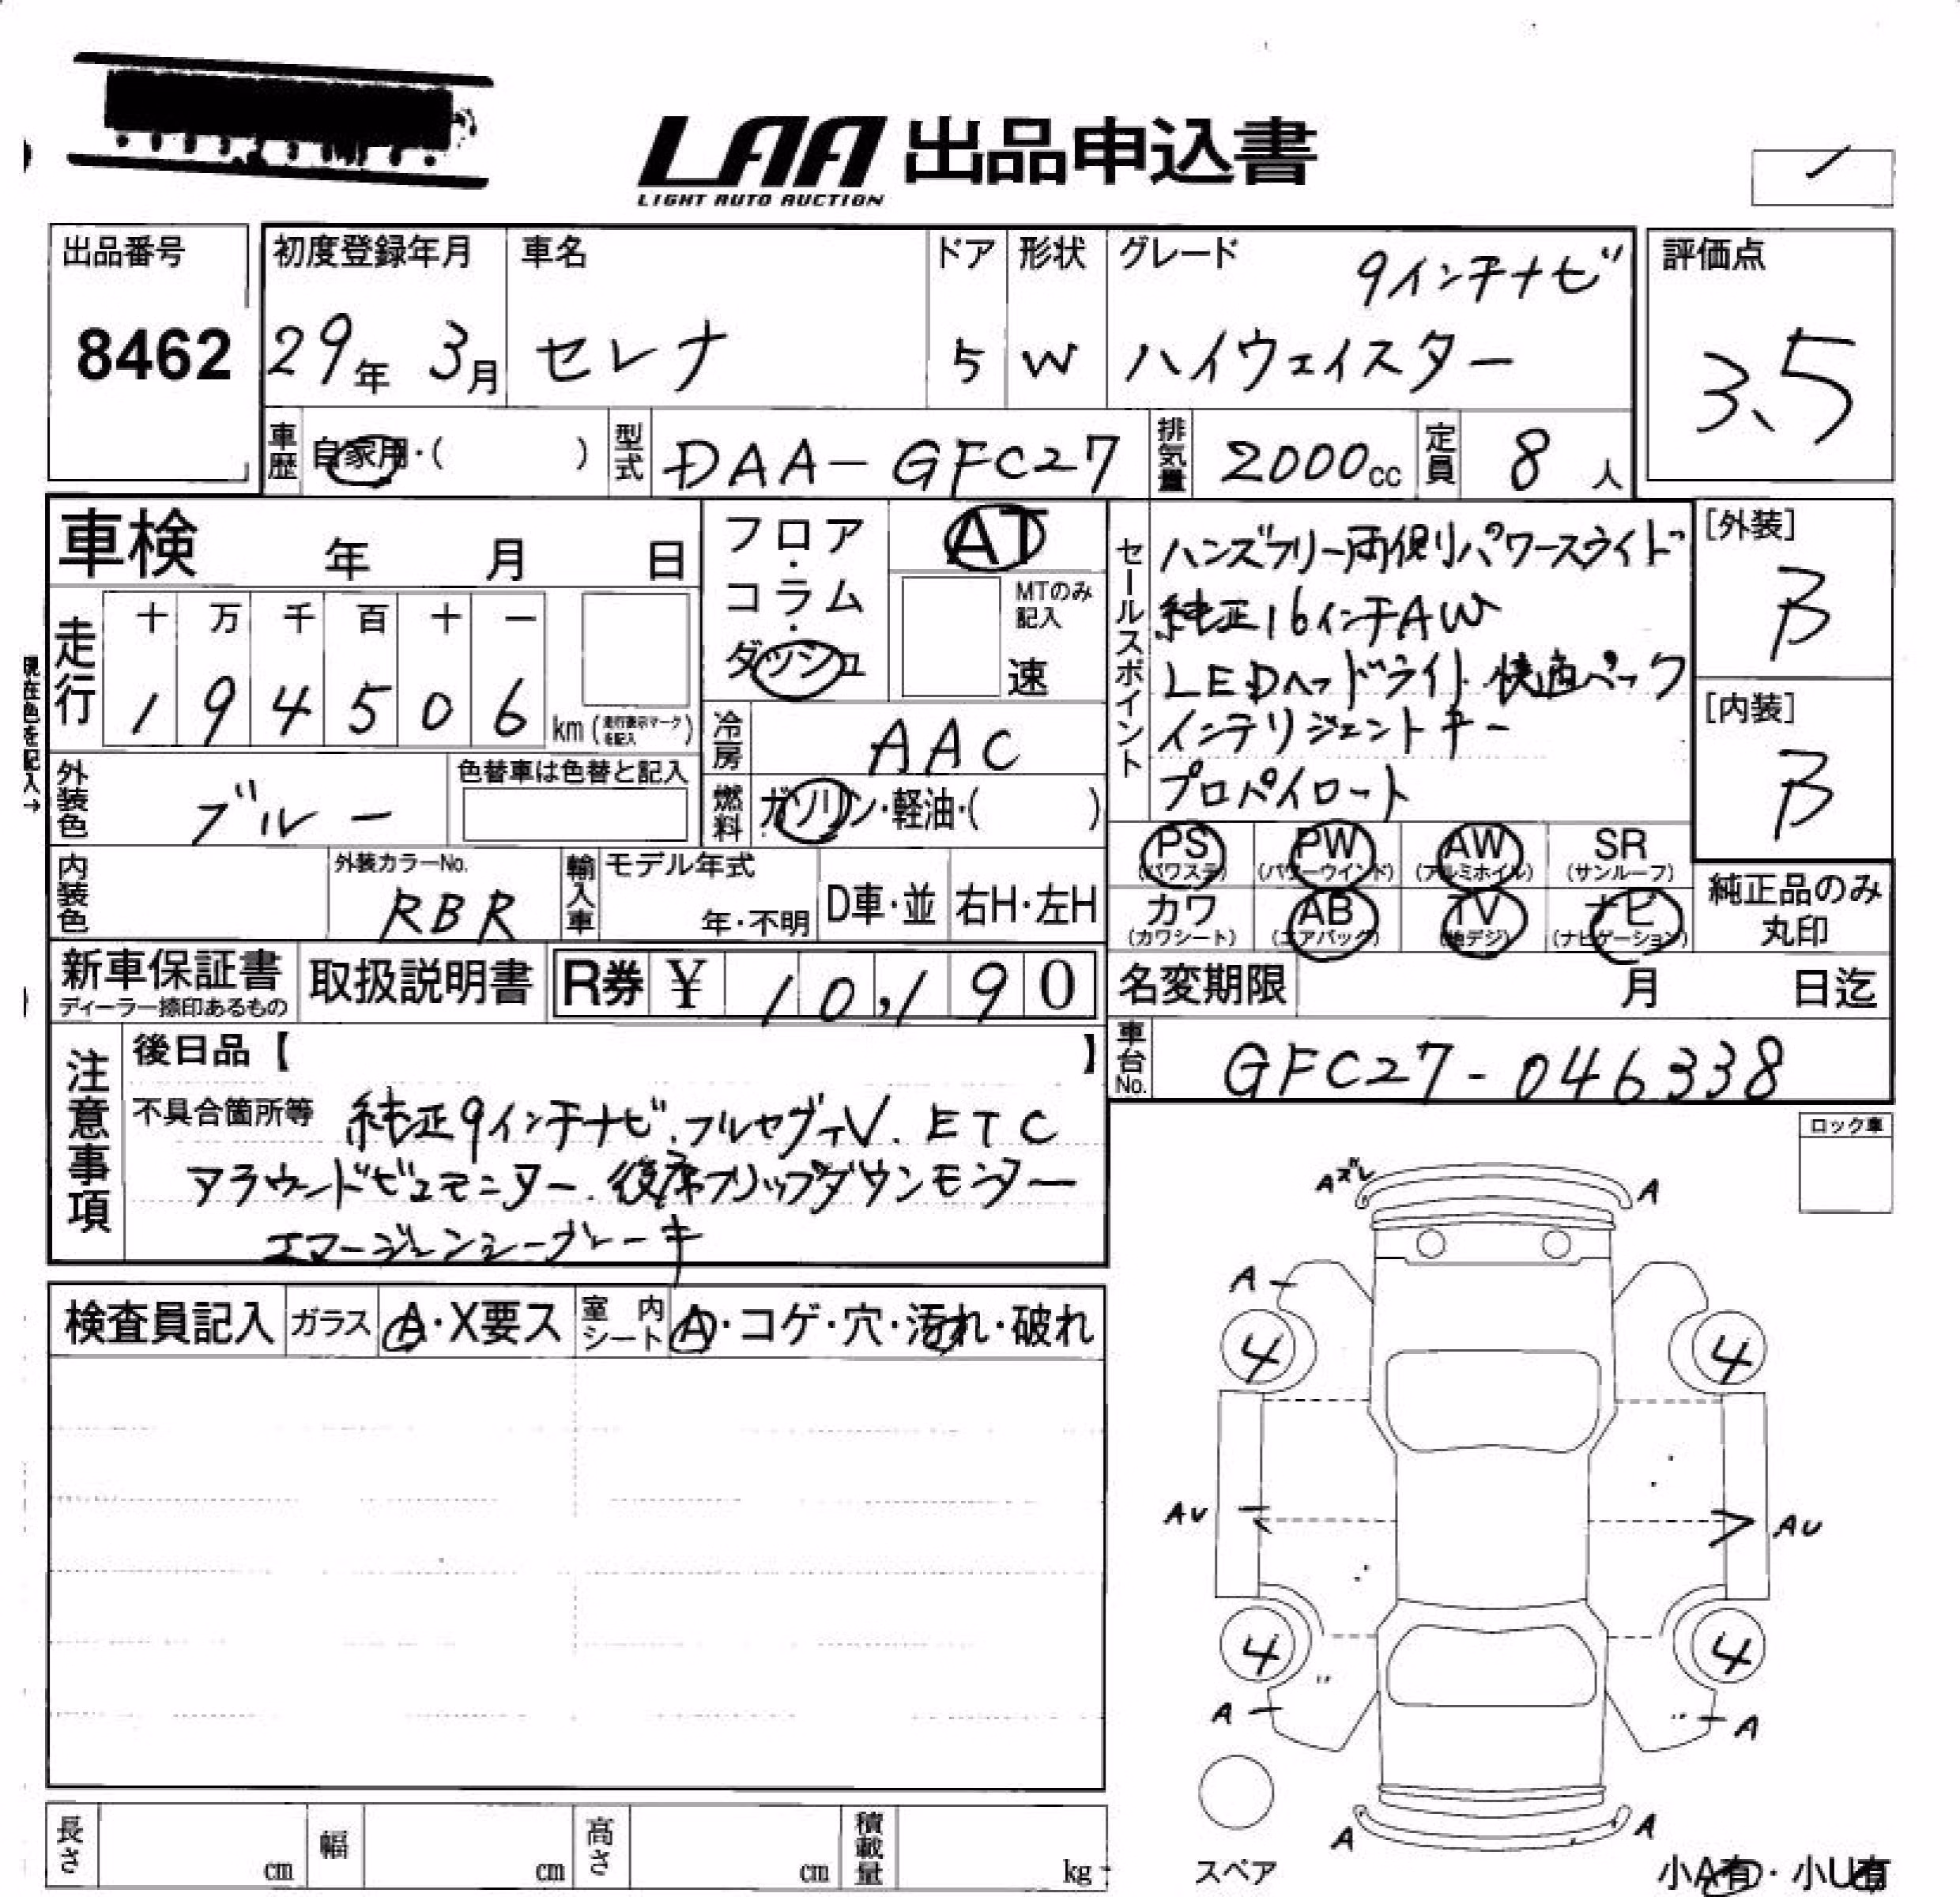 LAA 出品申込書
LIGHT AUTO AUCTION
出品番号
8462
初度登録年月
29年 3月
車名
セレナ
ドア
5
形状
W
グレード
9インチナビ
ハイウェイスター
評価点
3.5
車歴
自家用・( )
型式
DAA-GFC27
排気量
2000cc
定員
8人
車検 年 月 日
走行
十 万 千 百 十 一
1 9 4 5 0 6 km (走行表示マークを記入)
現在色を記入→
フロア・コラム・ダッシュ
AT
MTのみ記入
速
冷房
AAC
燃料
ガソリン・軽油・( )
外装色
ブルー
色替車は色替と記入
内装色
外装カラーNo.
RBR
輸入車
モデル年式
年・不明
D車・並
右H・左H
セールスポイント
ハンズフリー両側パワースライド
純正16インチAW
LEDヘッドライト.快適パック
インテリジェントキー
プロパイロート
[外装]
B
[内装]
B
PS
(パワステ)
PW
(パワーウインド)
AW
(アルミホイル)
SR
(サンルーフ)
カワ
(カワシート)
AB
(エアバッグ)
TV
(地デジ)
ナビ
(ナビゲーション)
純正品のみ
丸印
新車保証書
ディーラー捺印あるもの
取扱説明書
R券 ¥ 10,190
名変期限 月 日迄
車台No.
GFC27-046338
注意事項
後日品【 】
不具合箇所等 純正9インチナビ.フルセグTV.ETC
アラウンドビュモニター.後席フリップダウンモニター
エマージェンシーブレーキ
ロック車
検査員記入 ガラス A・X要ス 室内シート A・コゲ・穴・汚れ・破れ
Aズレ
A
A
4
4
AU
AU
4
4
A
A
A
A
スペア
小A有・小U有
長さ cm 幅 cm 高さ cm 積載量 kg